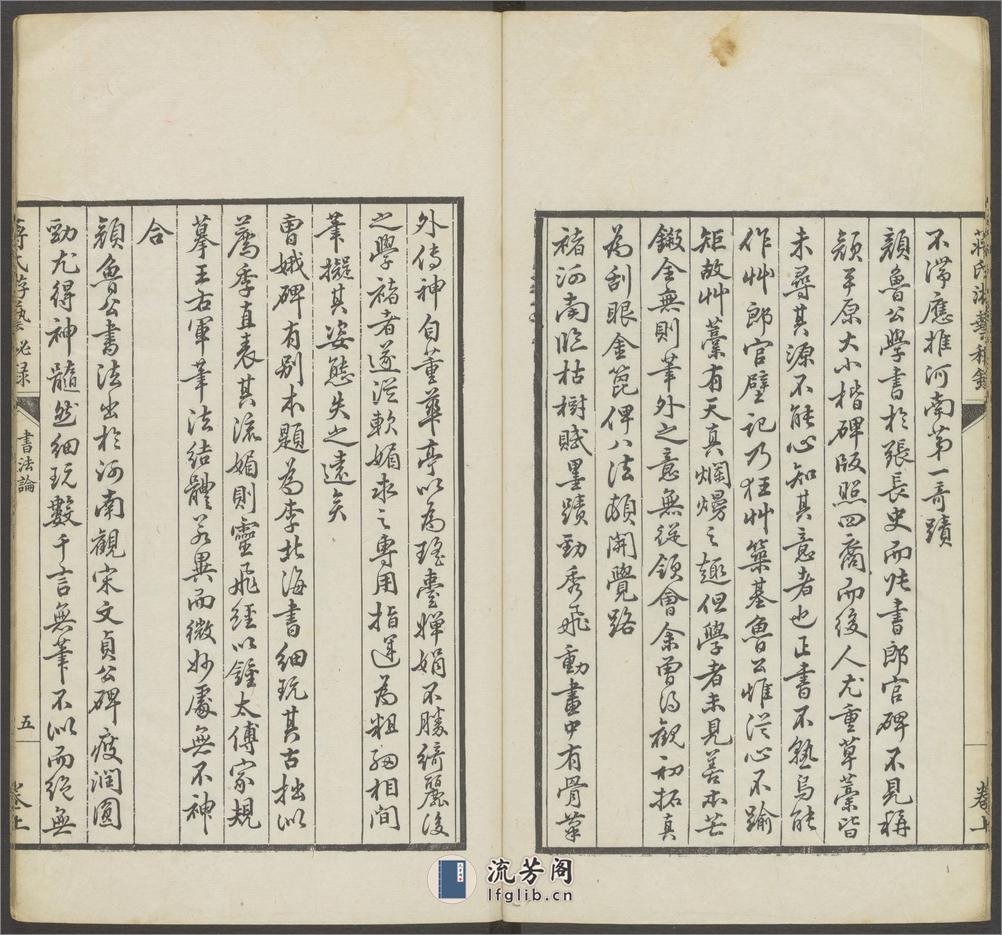 蔣氏游藝秘錄
卷上
不滯應推河南第一奇蹟
顏魯公學書於張長史而此書郎官碑不見稱
顏平原大小楷碑版照四裔而後人尤重草藁皆
未尋其源不能心知其意者也正書不熟烏能
作艸郎官壁記乃狂艸築基魯公惟從心不踰
矩故艸藁有天真爛熳之趣但學者未見善本芒
鎩全無則筆外之意無從領會余曾得觀初拓真
為刮眼金篦俾八法頗開覺路
褚河南臨枯樹賦墨蹟勁秀飛動畫中有骨葉
外傳神自董華亭以為瑤臺嬋娟不勝綺麗後
之學褚者遂從軟媚求之專用指運為粗細相間
筆擬其姿態失之遠矣
曹娥碑有別本題為李北海書細玩其古拙似
薦季直表其流媚則靈飛經以鍾太傅家規
摹王右軍筆法結體若異而微妙處無不神
合
顏魯公書法出於河南觀宋文貞公碑瘦潤圓
勁尤得神髓然細玩數千言無筆不似而絕無
蔣氏游藝秘錄
書法論
五
卷上
流芳阁
lfglib.cn